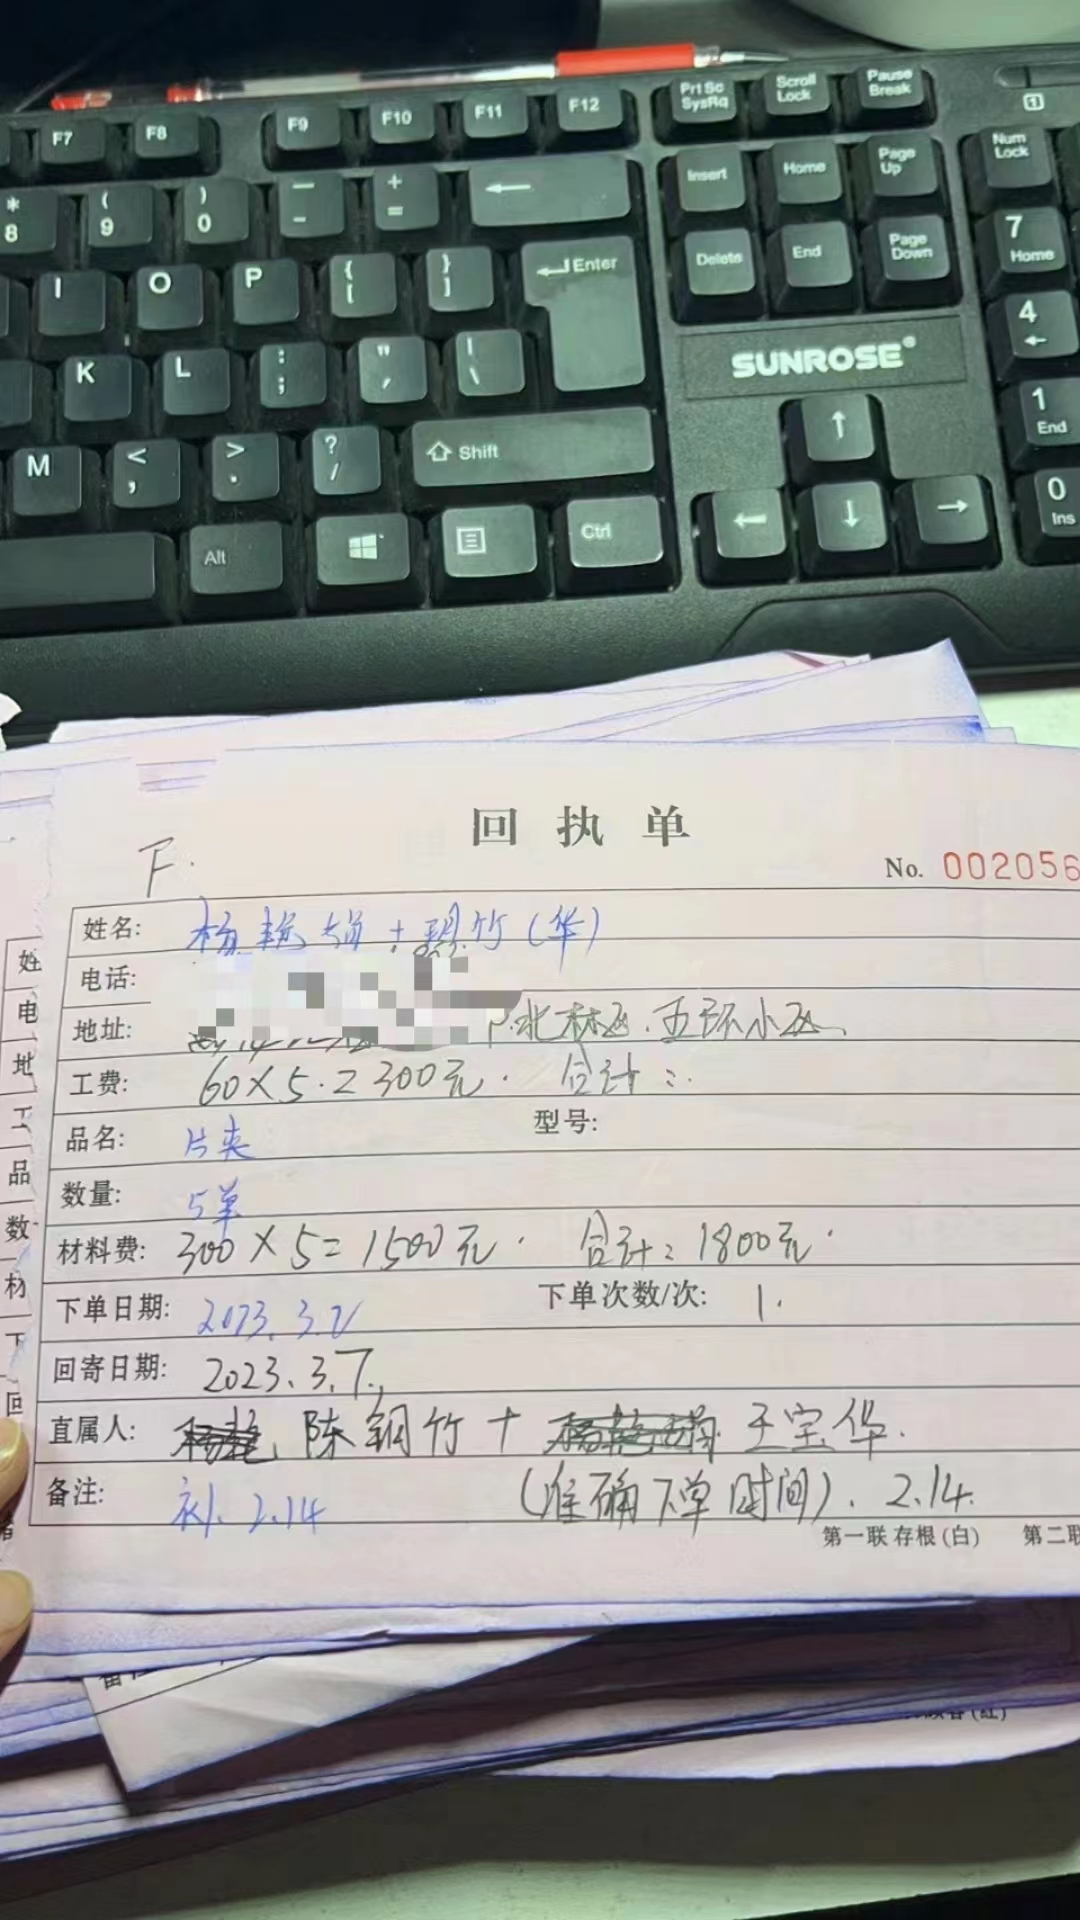 F7 F8 F9 F10 F11 F12 Prt Sc SysRq Scroll Lock Pause Break
* 8 ( 9 ) 0 — - + = Insert Home Page Up Num Lock
I O P { [ } ] Enter Delete End Page Down 7 Home
K L : ; " ' | \ SUNROSE® 4
M < , > . ? / Shift 1 End
Alt Ctrl 0 Ins
回执单
F.
No. 002056
姓名: (华)
电话:
地址: 北林区.五环小区.
工费: 60×5.=300元. 合计:
品名: 片夹 型号:
数量: 5单
材料费: 300×5=1500元. 合计:1800元.
下单日期: 下单次数/次: 1.
回寄日期: 2023.3.7.
直属人: 陈钢竹+ 王宝华.
备注: 补.2.14 (准确下单时间).2.14.
第一联 存根(白) 第二联
姓
电
地
工
品
数
材
下
回